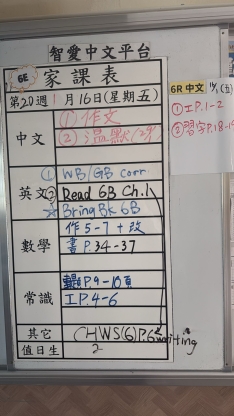 智愛中文平台
6E
家課表
第20週 1月16日(星期五)
中文
① 作文
② 溫默(29)
英文
① WB/GB corr
② Read GB Ch.1
☆ Bring Bk 6B
數學
作5-7+改
書P.34-37
常識
P.9-10頁
工P.4-6
其它
CHWS(6)P.6 writing
值日生
2
6R 中文 (五)
① 工P.1-2
② 習字P.18-19